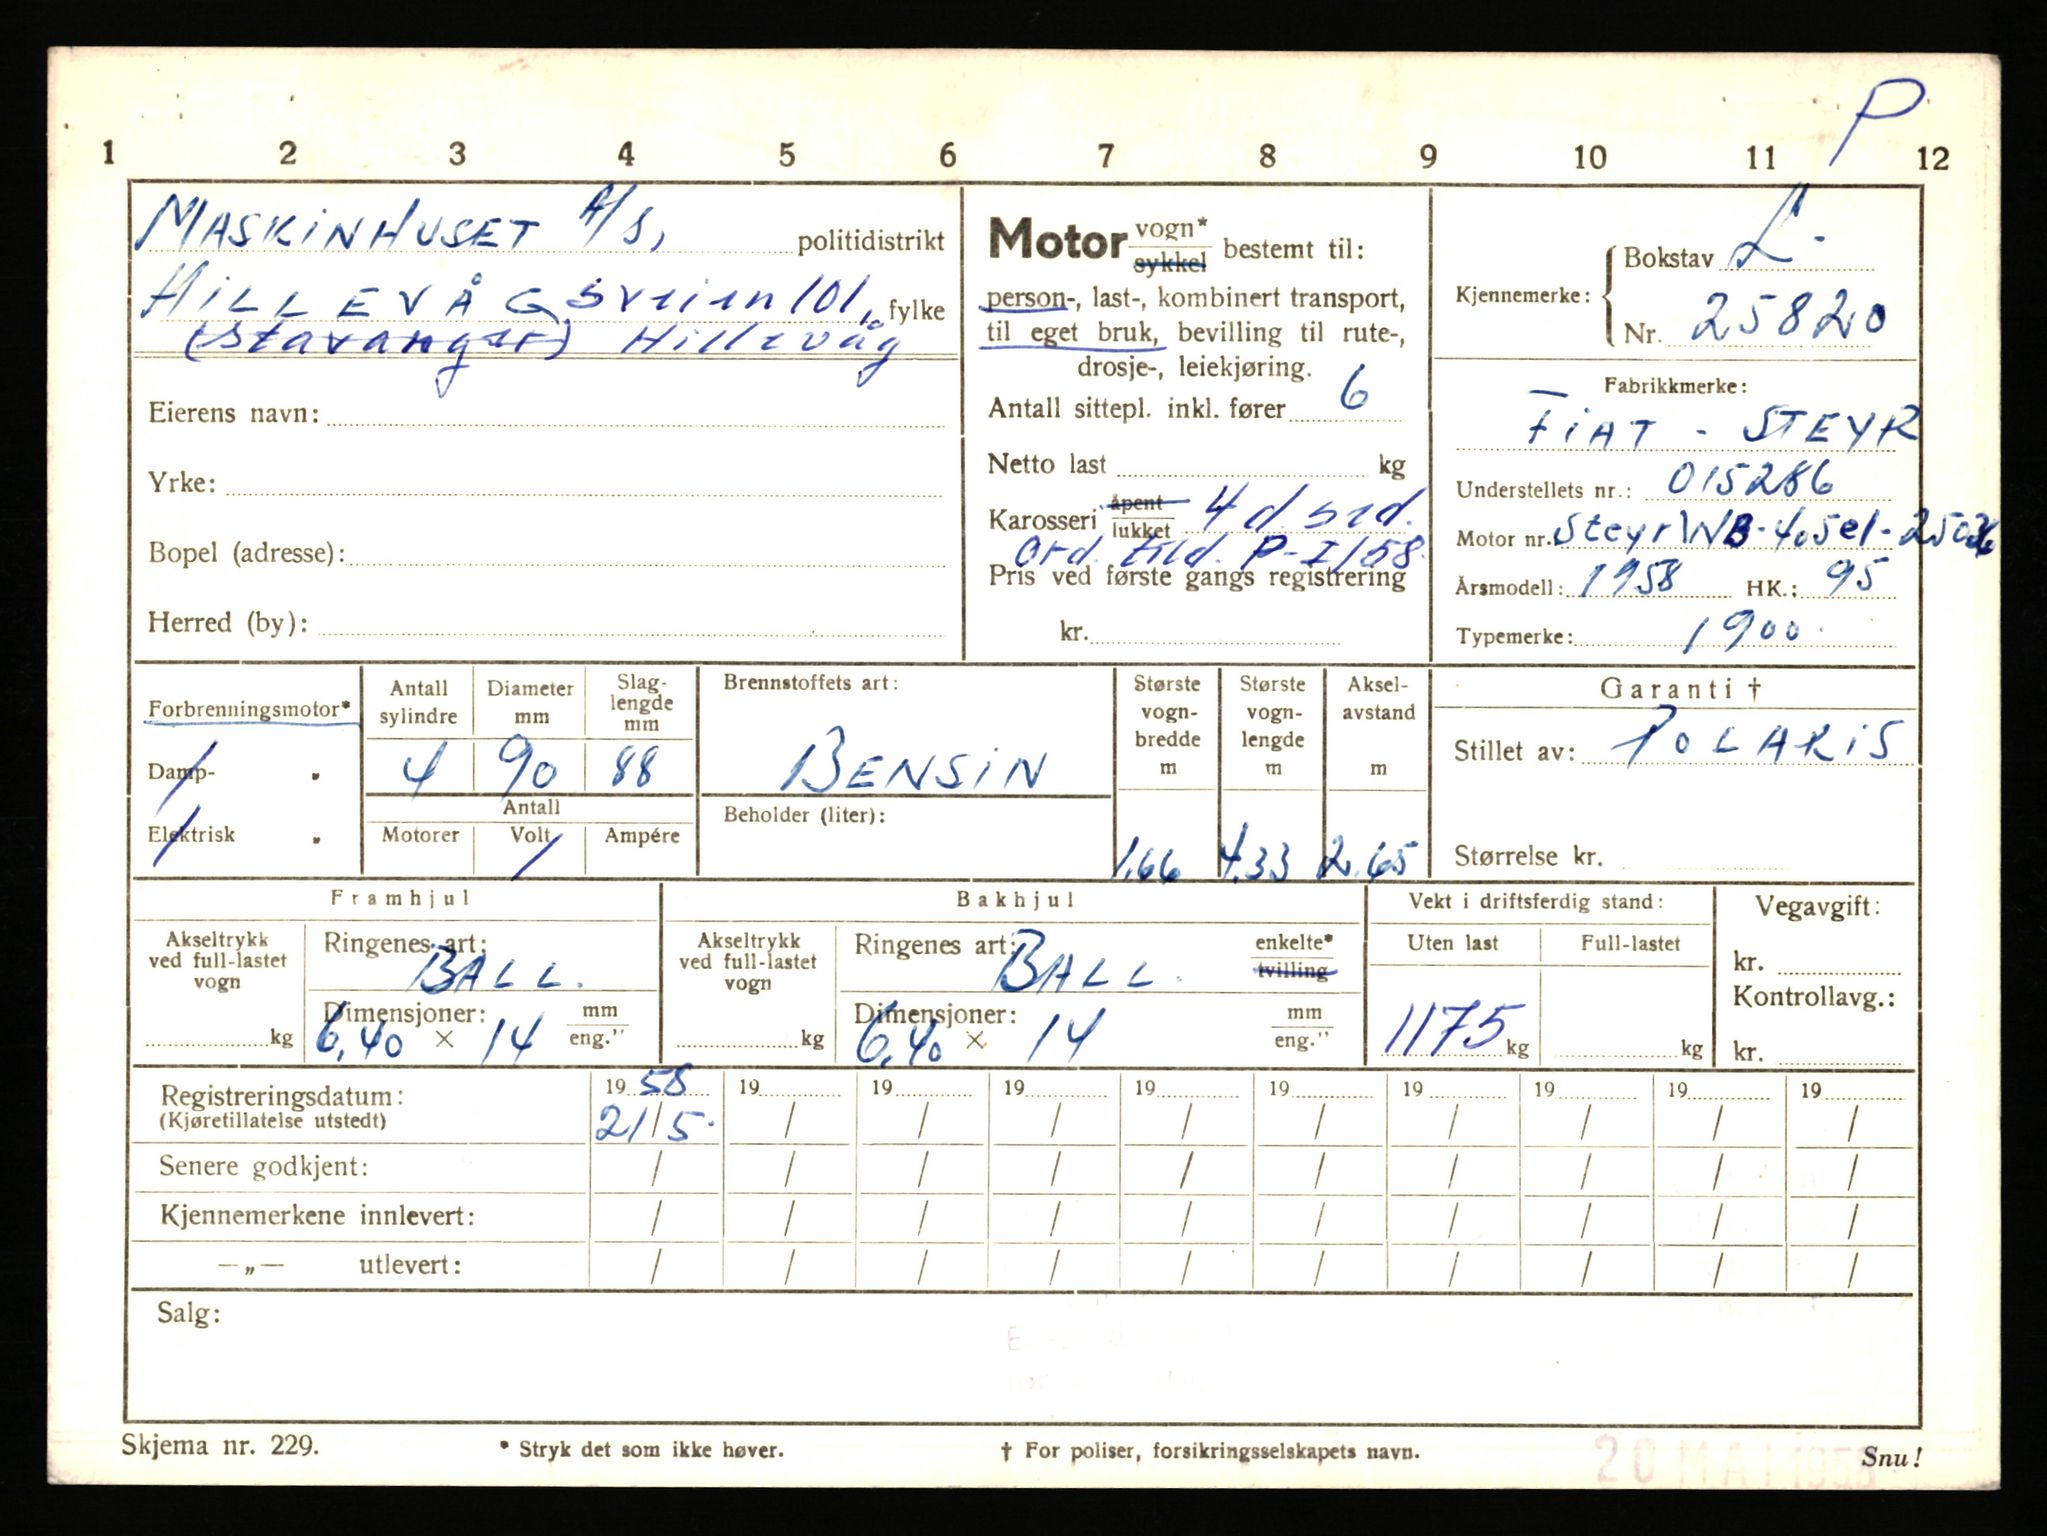 P
1 2 3 4 5 6 7 8 9 10 11 12
MASKINHUSET A/S, politidistrikt
HILLEVÅGSveien 101, fylke
(Stavanger) Hillevåg
Eierens navn:
Yrke:
Bopel (adresse):
Herred (by):
Motor vogn* sykkel bestemt til:
person-, last-, kombinert transport,
til eget bruk, bevilling til rute-,
drosje-, leiekjøring.
Antall sittepl. inkl. fører 6
Netto last kg
Karosseri åpent lukket 4 d. sed.
Ord. tild. P-I/58.
Pris ved første gangs registrering
kr.
Kjennemerke: Bokstav L-
Nr. 25820
Fabrikkmerke:
FIAT - STEYR
Understellets nr.: 015286
Motor nr. Steyr WB-405el-
Årsmodell: 1958 HK.: 95
Typemerke: 1900.
Forbrenningsmotor*
Damp- „
Elektrisk „
Antall sylindre
4
Diameter mm
90
Slag-lengde mm
88
Antall
Motorer Volt Ampére
Brennstoffets art:
BENSIN
Beholder (liter):
Største vogn-bredde m
1.66
Største vogn-lengde m
4.33
Aksel-avstand m
2.65
Garanti †
Stillet av: POLARIS
Størrelse kr.
Framhjul
Akseltrykk
ved full-lastet
vogn
kg
Ringenes art:
BALL.
Dimensjoner: mm
6,40 × 14 eng."
Bakhjul
Akseltrykk
ved full-lastet
vogn
kg
Ringenes art: enkelte*
BALL. tvilling
Dimensjoner: mm
6,40 × 14 eng."
Vekt i driftsferdig stand:
Uten last Full-lastet
1175 kg kg
Vegavgift:
kr.
Kontrollavg.:
kr.
Registreringsdatum: 19 58 19 19 19 19 19 19 19 19 19
(Kjøretillatelse utstedt) 21/5. / / / / / / / / /
Senere godkjent: / / / / / / / / / /
Kjennemerkene innlevert: / / / / / / / / / /
—„— utlevert: / / / / / / / / / /
Salg:
Skjema nr. 229. * Stryk det som ikke høver. † For poliser, forsikringsselskapets navn. Snu!
20 MAI 1958